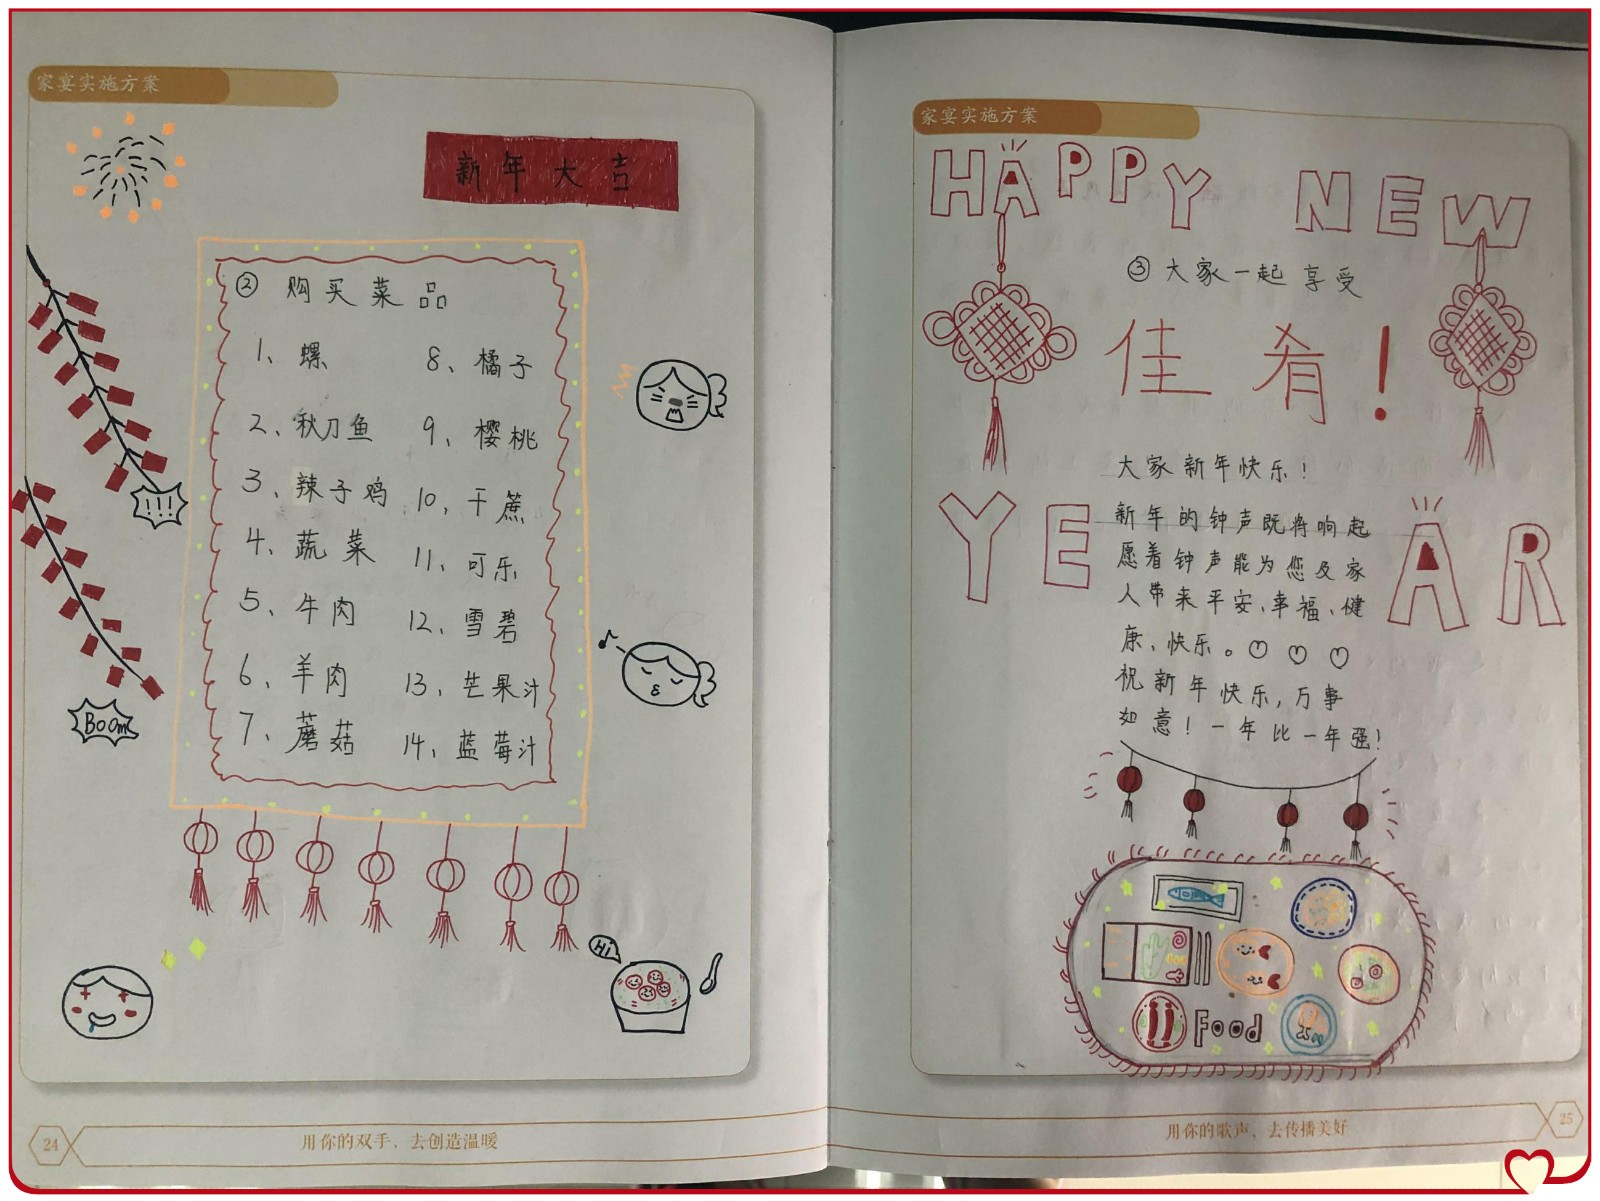 家宴实施方案
新年大吉
② 购买菜品
1、螺
2、秋刀鱼
3、辣子鸡
4、蔬菜
5、牛肉
6、羊肉
7、蘑菇
8、橘子
9、樱桃
10、干蔗
11、可乐
12、雪碧
13、芒果汁
14、蓝莓汁
!!!
Boom
Hi
24
用你的双手、去创造温暖
家宴实施方案
HAPPY NEW
③ 大家一起享受
佳肴!
大家新年快乐!
YEAR
新年的钟声既将响起
愿着钟声能为您及家
人带来平安、幸福、健
康、快乐。♡ ♡ ♡
祝新年快乐,万事
如意!一年比一年强!
Food
用你的歌声、去传播美好
25